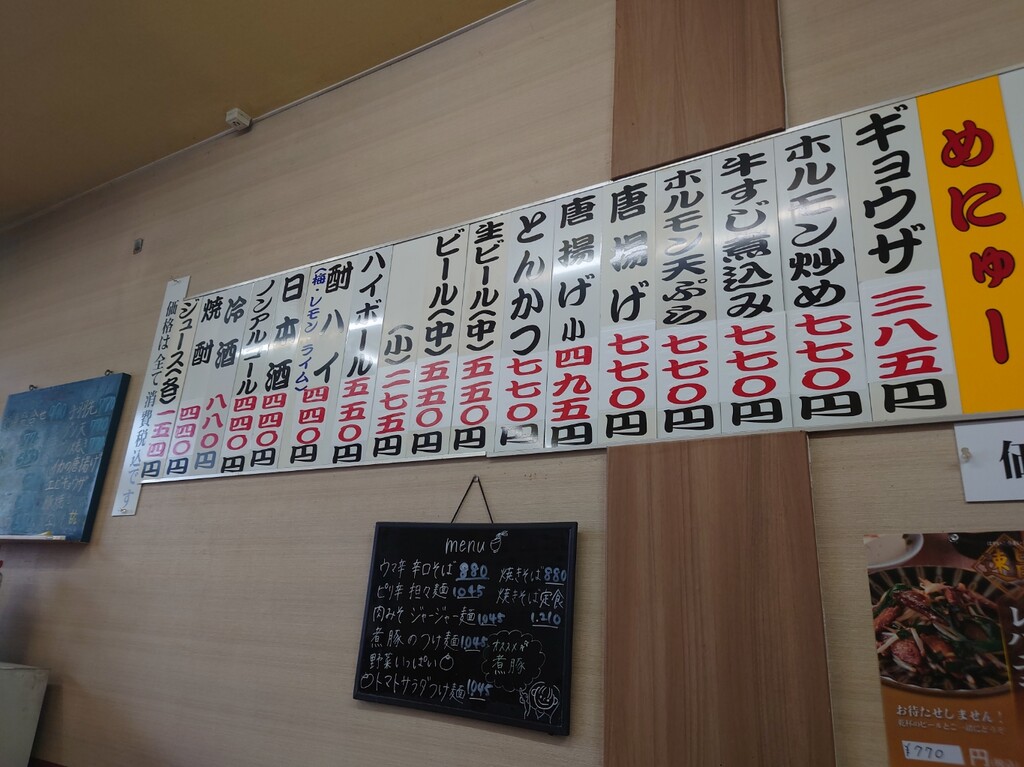 めにゅー
ギョウザ 三八五円
ホルモン炒め 七七〇円
牛すじ煮込み 七七〇円
ホルモン天ぷら 七七〇円
唐揚げ 七七〇円
唐揚げ小 四九五円
とんかつ 七七〇円
生ビール(中) 五五〇円
ビール(中) 五五〇円
(小) 二七五円
ハイボール 五五〇円
酎ハイ 四四〇円
(梅・レモン ライム)
日本酒 四四〇円
ノンアルコール 四四〇円
冷酒 八八〇円
焼酎 四四〇円
ジュース(各) 一五四円
価格は全て消費税込です
menu
ウマ辛 辛口そば 880
ピリ辛 担々麺 1045
肉みそ ジャージャー麺 1045
煮豚のつけ麺 1045
野菜いっぱい
トマトサラダつけ麺 1045
焼きそば 880
焼きそば定食
1,210
オススメ
煮豚
お待たせしません!
¥770